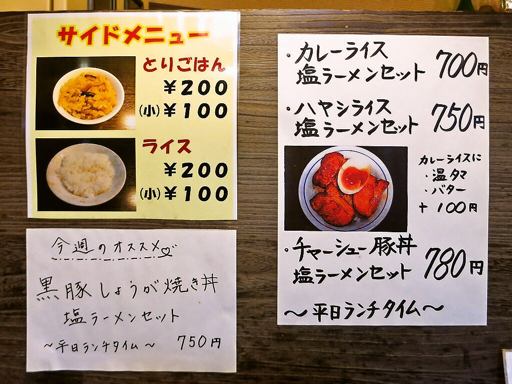 サイドメニュー
とりごはん
￥200
(小)￥100
ライス
￥200
(小)￥100
今週のオススメ♡
黒豚しょうが焼き丼
塩ラーメンセット
～平日ランチタイム～ 750円
・カレーライス
塩ラーメンセット 700円
・ハヤシライス
塩ラーメンセット 750円
カレーライスに
・温タマ
・バター
+100円
・チャーシュー豚丼
塩ラーメンセット 780円
～平日ランチタイム～